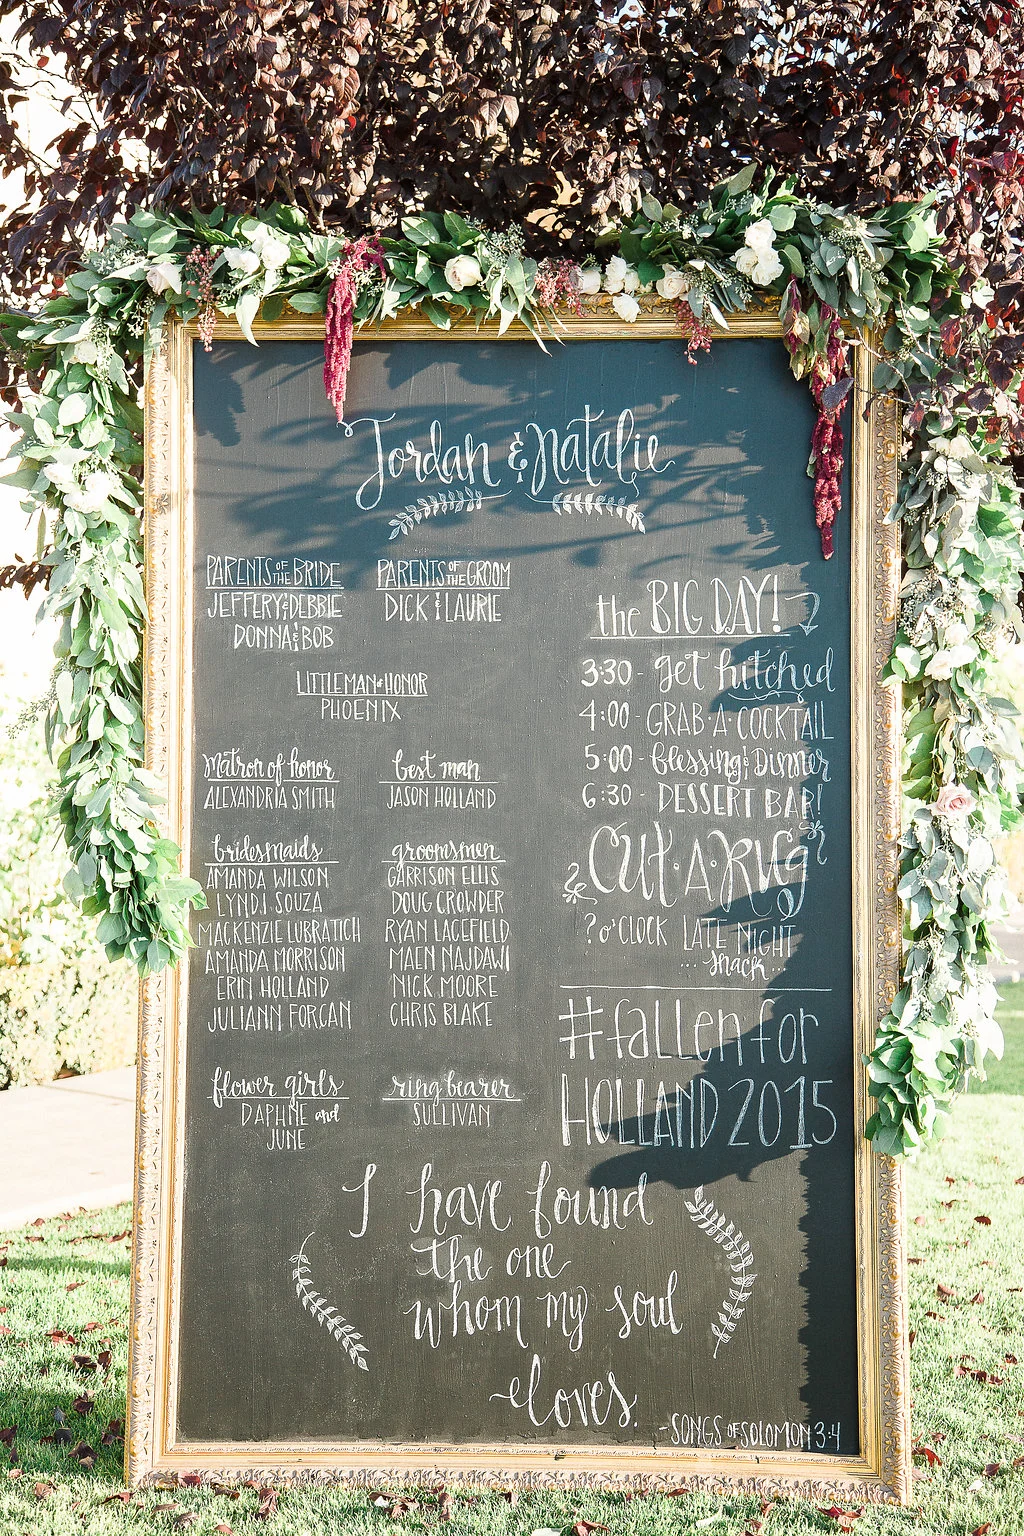 Jordan & Natalie
PARENTS OF THE BRIDE
JEFFERY & DEBBIE
DONNA & BOB
PARENTS OF THE GROOM
DICK & LAURIE
LITTLE MAN of HONOR
PHOENIX
matron of honor
ALEXANDRIA SMITH
best man
JASON HOLLAND
bridesmaids
AMANDA WILSON
LYNDI SOUZA
MACKENZIE LUBRATICH
AMANDA MORRISON
ERIN HOLLAND
JULIANN FORCAN
groomsmen
GARRISON ELLIS
DOUG CROWDER
RYAN LAGEFIELD
MAEN NAJDAWI
NICK MOORE
CHRIS BLAKE
flower girls
DAPHNE and
JUNE
ring bearer
SULLIVAN
the BIG DAY!
3:30 - get hitched
4:00 - GRAB·A·COCKTAIL
5:00 - Blessing & Dinner
6:30 - DESSERT BAR!
& CUT·A·RUG
? o'CLOCK LATE NIGHT
... snack ...
#fallenfor
HOLLAND 2015
I have found
the one
whom my soul
loves.
- SONGS OF SOLOMON 3:4